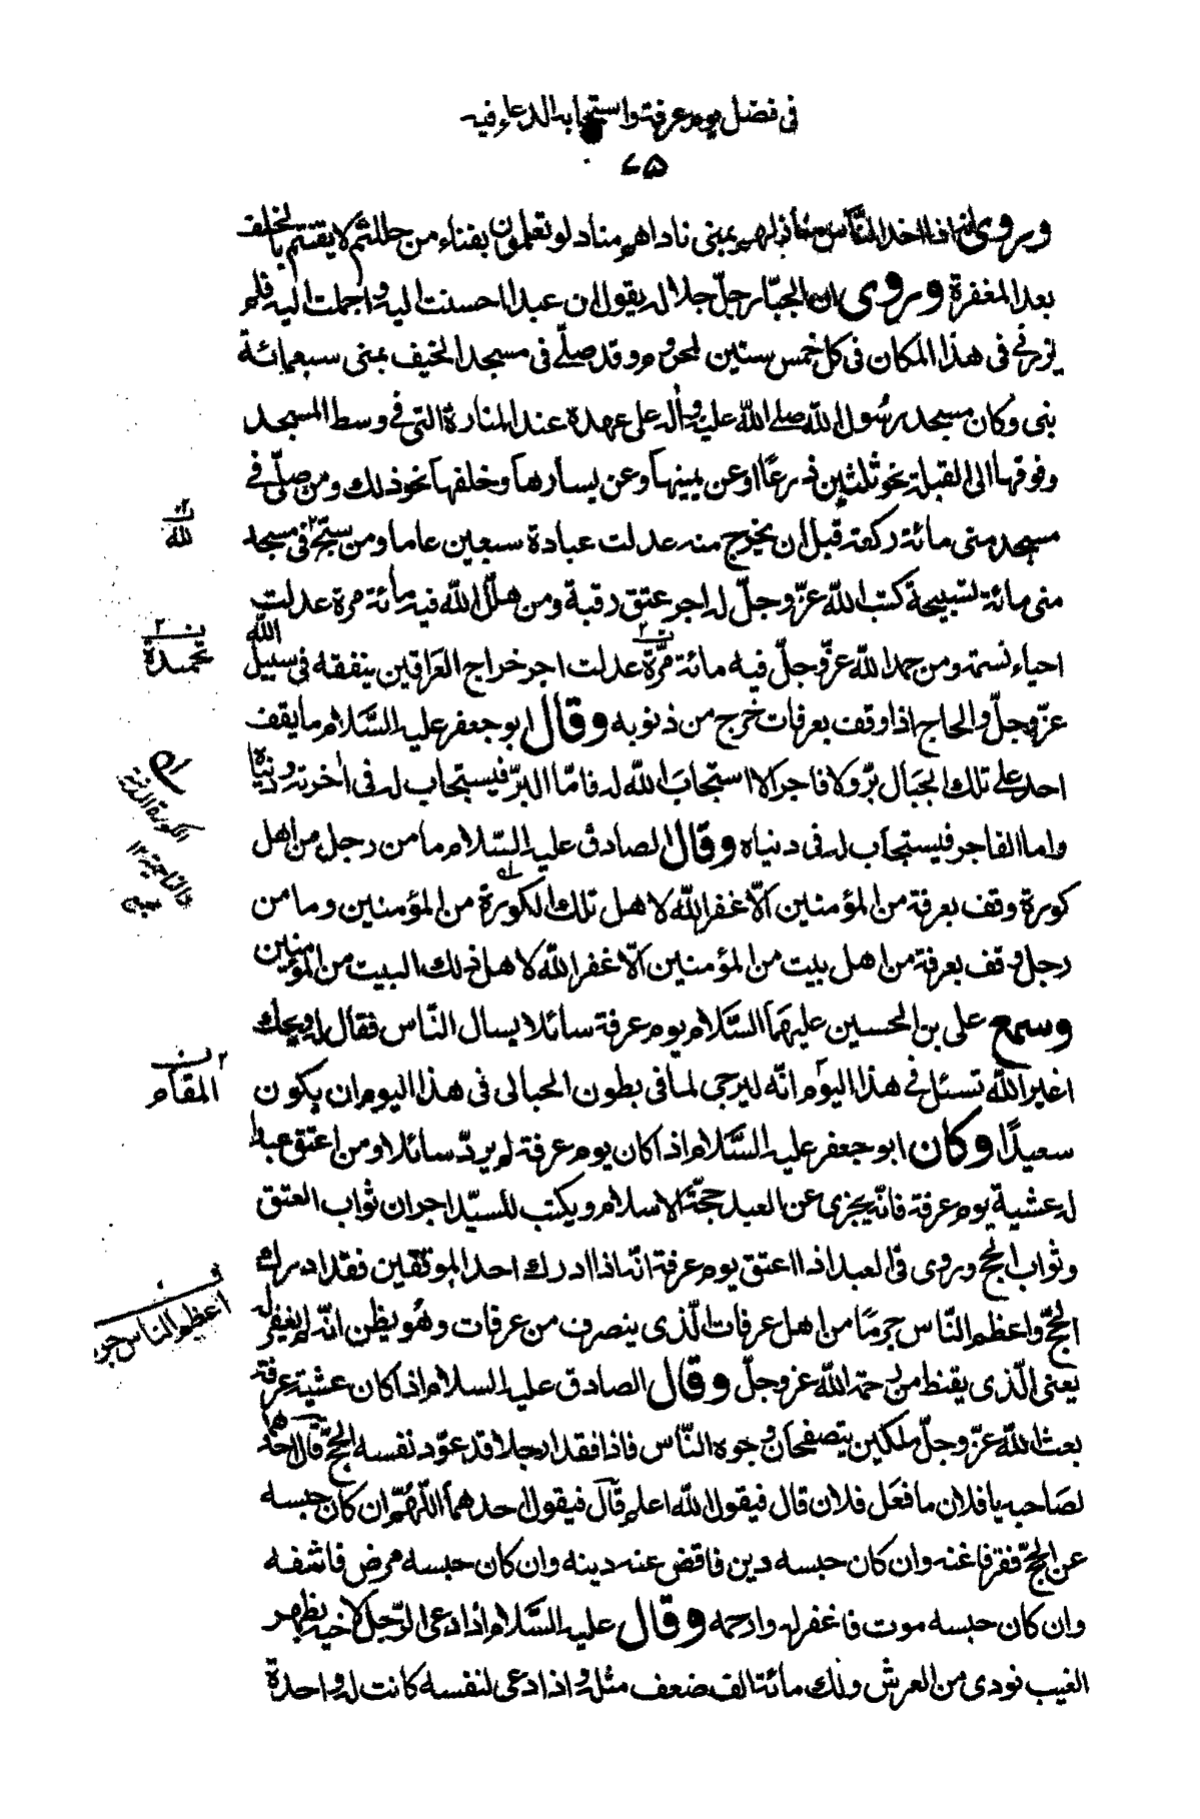 في فضل يوم عرفة واستجابة الدعاء فيه
وروى انه اذا اخذ الناس منازلهم بمنى ناداهم مناد لو تعلمون بفناء من حللتم لايقنتم بالخلف
بعد المغفرة وروى ان الجبار جل جلاله يقول ان عبدا احسنت اليه واجملت اليه فلم
يزرني في هذا المكان في كل خمس سنين لمحروم وقد صلى في مسجد الخيف بمنى سبعمائة
نبى وكان مسجد رسول الله صلى الله عليه وآله على عهده عند المنارة التي في وسط المسجد
وفوقها الى القبلة نحو ثلثين ذرعا وعن يمينها وعن يسارها وخلفها نحو ذلك ومن صلى في
مسجد منى مائة ركعة قبل ان يخرج منه عدلت عبادة سبعين عاما ومن سبح في مسجد
منى مائة تسبيحة كتب الله عز وجل له اجر عتق رقبة ومن هلل الله فيه مائة مرة عدلت
احياء نسمة ومن حمد الله عز وجل فيه مائة مرة عدلت اجر خراج العراقين ينفقه في سبيل الله
عز وجل والحاج اذا وقف بعرفات خرج من ذنوبه وقال ابو جعفر عليه السلام ما يقف
احد على تلك الجبال بر ولا فاجر الا استجاب الله له فاما البر فيستجاب له في آخرته ودنياه
واما الفاجر فيستجاب له في دنياه وقال الصادق عليه السلام ما من رجل من اهل
كورة وقف بعرفة من المؤمنين الا غفر الله لاهل تلك الكورة من المؤمنين وما من
رجل وقف بعرفة من اهل بيت من المؤمنين الا غفر الله لاهل ذلك البيت من المؤمنين
وسمع على بن الحسين عليهما السلام يوم عرفة سائلا يسال الناس فقال له ويحك
اغير الله تسئل في هذا اليوم انه ليرجى لما في بطون الحبالى في هذا اليوم ان يكون
سعيدا وكان ابو جعفر عليه السلام اذا كان يوم عرفة لم يرد سائلا ومن اعتق عبدا
له عشية يوم عرفة فانه يجزى عن العبد حجة الاسلام ويكتب للسيد اجران ثواب العتق
وثواب الحج وروى في العبد اذا اعتق يوم عرفة انه اذا ادرك احد الموقفين فقد ادرك
الحج واعظم الناس جرما من اهل عرفات الذى ينصرف من عرفات وهو يظن انه لم يغفر له
يعنى الذى يقنط من رحمة الله عز وجل وقال الصادق عليه السلام اذا كان عشية عرفة
بعث الله عز وجل ملكين يتصفحان وجوه الناس فاذا فقدا رجلا قد عود نفسه الحج قال احدهما
لصاحبه يا فلان ما فعل فلان قال فيقول الله اعلم قال فيقول احدهما اللهم ان كان حبسه
عن الحج فقر فاغنه وان كان حبسه دين فاقض عنه دينه وان كان حبسه مرض فاشفه
وان كان حبسه موت فاغفر له وارحمه وقال عليه السلام اذا دعى الرجل لاخيه بظهر
الغيب نودى من العرش ولك مائة الف ضعف مثله واذا دعى لنفسه كانت له واحدة
لله
تحميدة
المقام
اعظم الناس جرما